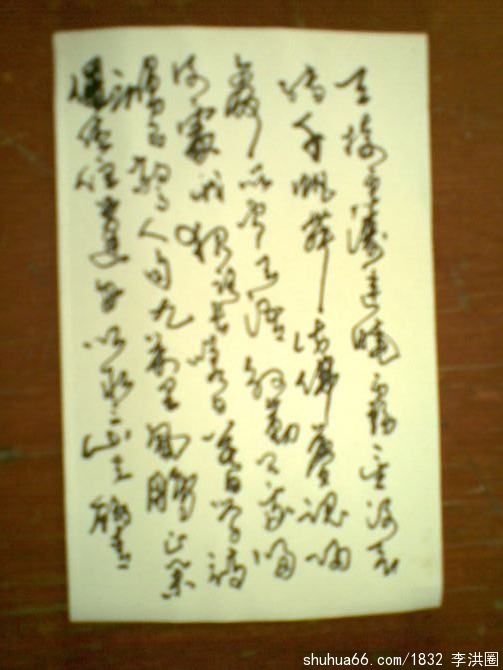 天接云濤連曉霧星河欲
轉千帆舞彷彿夢魂歸
帝所聞天語殷勤问我歸
何處我報路長嗟日暮學詩
謾有驚人句九萬里風鵬正举
休住蓬舟吹取三山去
shuhua66.com/1832 李洪圈